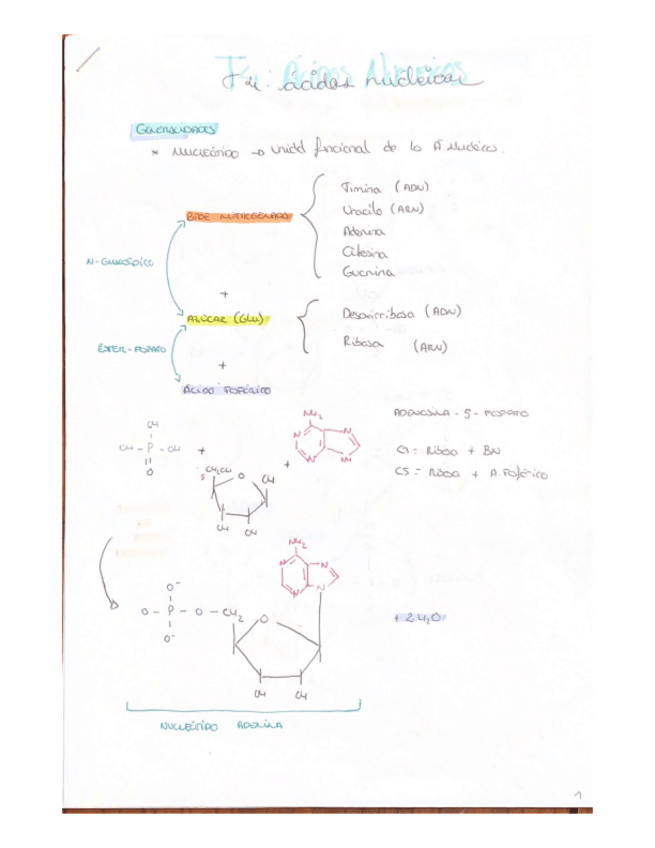 T4: Ácidos Nucleicos
GENERALIDADES
* NUCLEÓTIDO → Unidd funcional de lo A. Nucleico.
BASE NITROGENADA
Timina (ADN)
Uracilo (ARN)
Adenina
Citosina
Guanina
N-GLUCOSÍDICO
+
AZÚCAR (GLU)
Desoxirribosa (ADN)
Ribosa (ARN)
ÉSTER-FOSFATO
+
ÁCIDO FOSFÓRICO
ADENOSINA - 5 - FOSFATO
C1 = Ribosa + BN
C5 = Ribosa + A. Fosfórico
OH
OH - P - OH
O
+
5
CH2OH
O
OH
OH OH
+
NH2
N N
N NH
NH2
N N
N N
O-
O - P - O - CH2
O-
O
OH OH
+ 2 H2O
NUCLEÓTIDO ADENINA
1